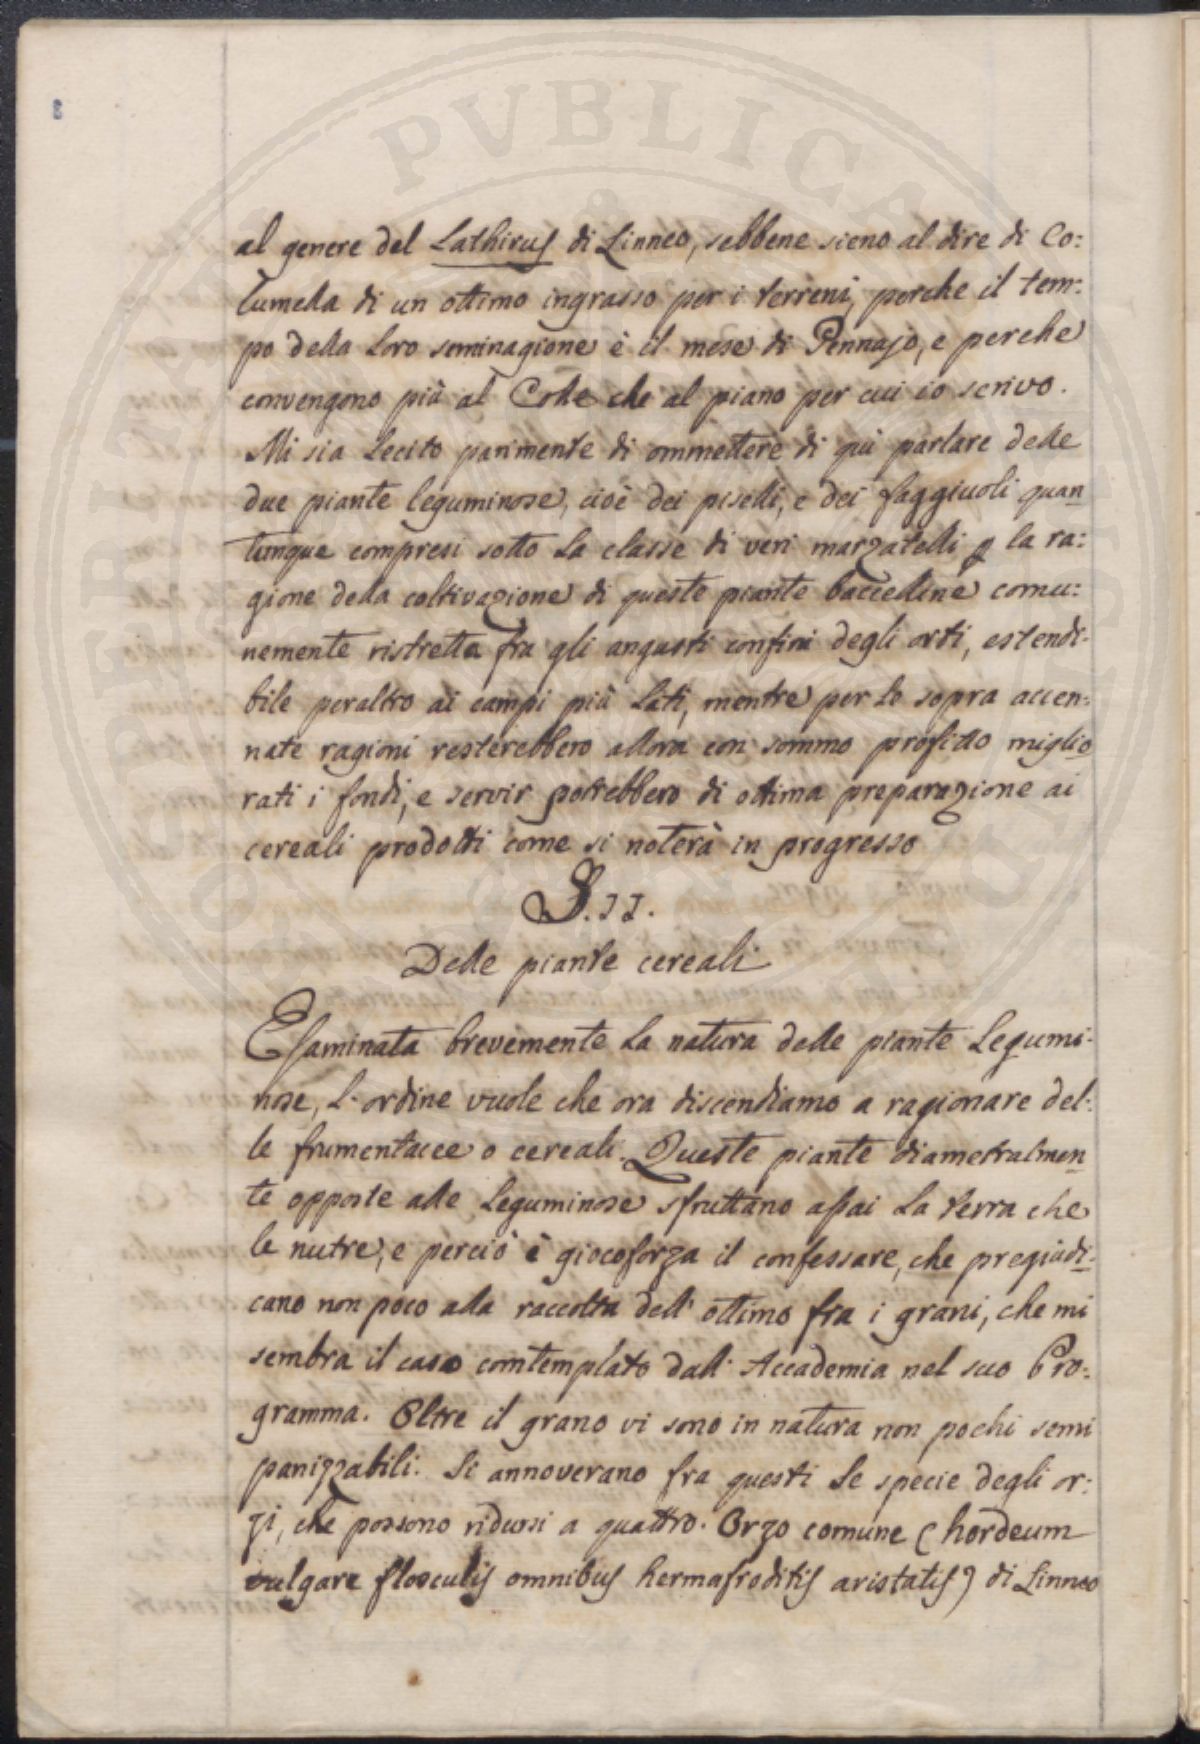 al genere del Lathirus di Linneo, sebbene sieno al dire di Co:
lumella di un ottimo ingrasso per i terreni, perche il tem:
po della loro seminagione è il mese di Gennajo, e perche
convengono più al Colle che al piano per cui io scrivo.
Mi sia lecito parimente di ommettere di quì parlare delle
due piante leguminose, cioè dei piselli, e dei faggiuoli quan
tunque compresi sotto la classe di veri marzatelli p la ra:
gione della coltivazione di queste piante baccelline comu:
nemente ristretta fra gli angusti confini degli orti, estendi-
bile peraltro ai campi più lati, mentre per le sopra accen:
nate ragioni resterebbero allora con sommo profitto miglio
rati i fondi, e servir potrebbero di ottima preparazione ai
cereali prodotti come si noterà in progresso
§. II.
Delle piante cereali
Esaminata brevemente la natura delle piante Legumi-
nose, l'ordine vuole che ora discendiamo a ragionare del:
le frumentacee o cereali. Queste piante diametralmen
te opposte alle leguminose sfruttano assai la terra che
le nutre, e perciò è giocoforza il confessare, che pregiudi:
cano non poco alla raccolta dell' ottimo fra i grani, che mi
sembra il caso comtemplato dall' Accademia nel suo Pro:
gramma. Oltre il grano vi sono in natura non pochi semi
panizzabili. Si annoverano fra questi le specie degli or:
zi, che possono ridursi a quattro. Orzo comune (hordeum
vulgare flosculis omnibus hermafroditis aristatis) di Linneo
PVBLICA
VERITAS